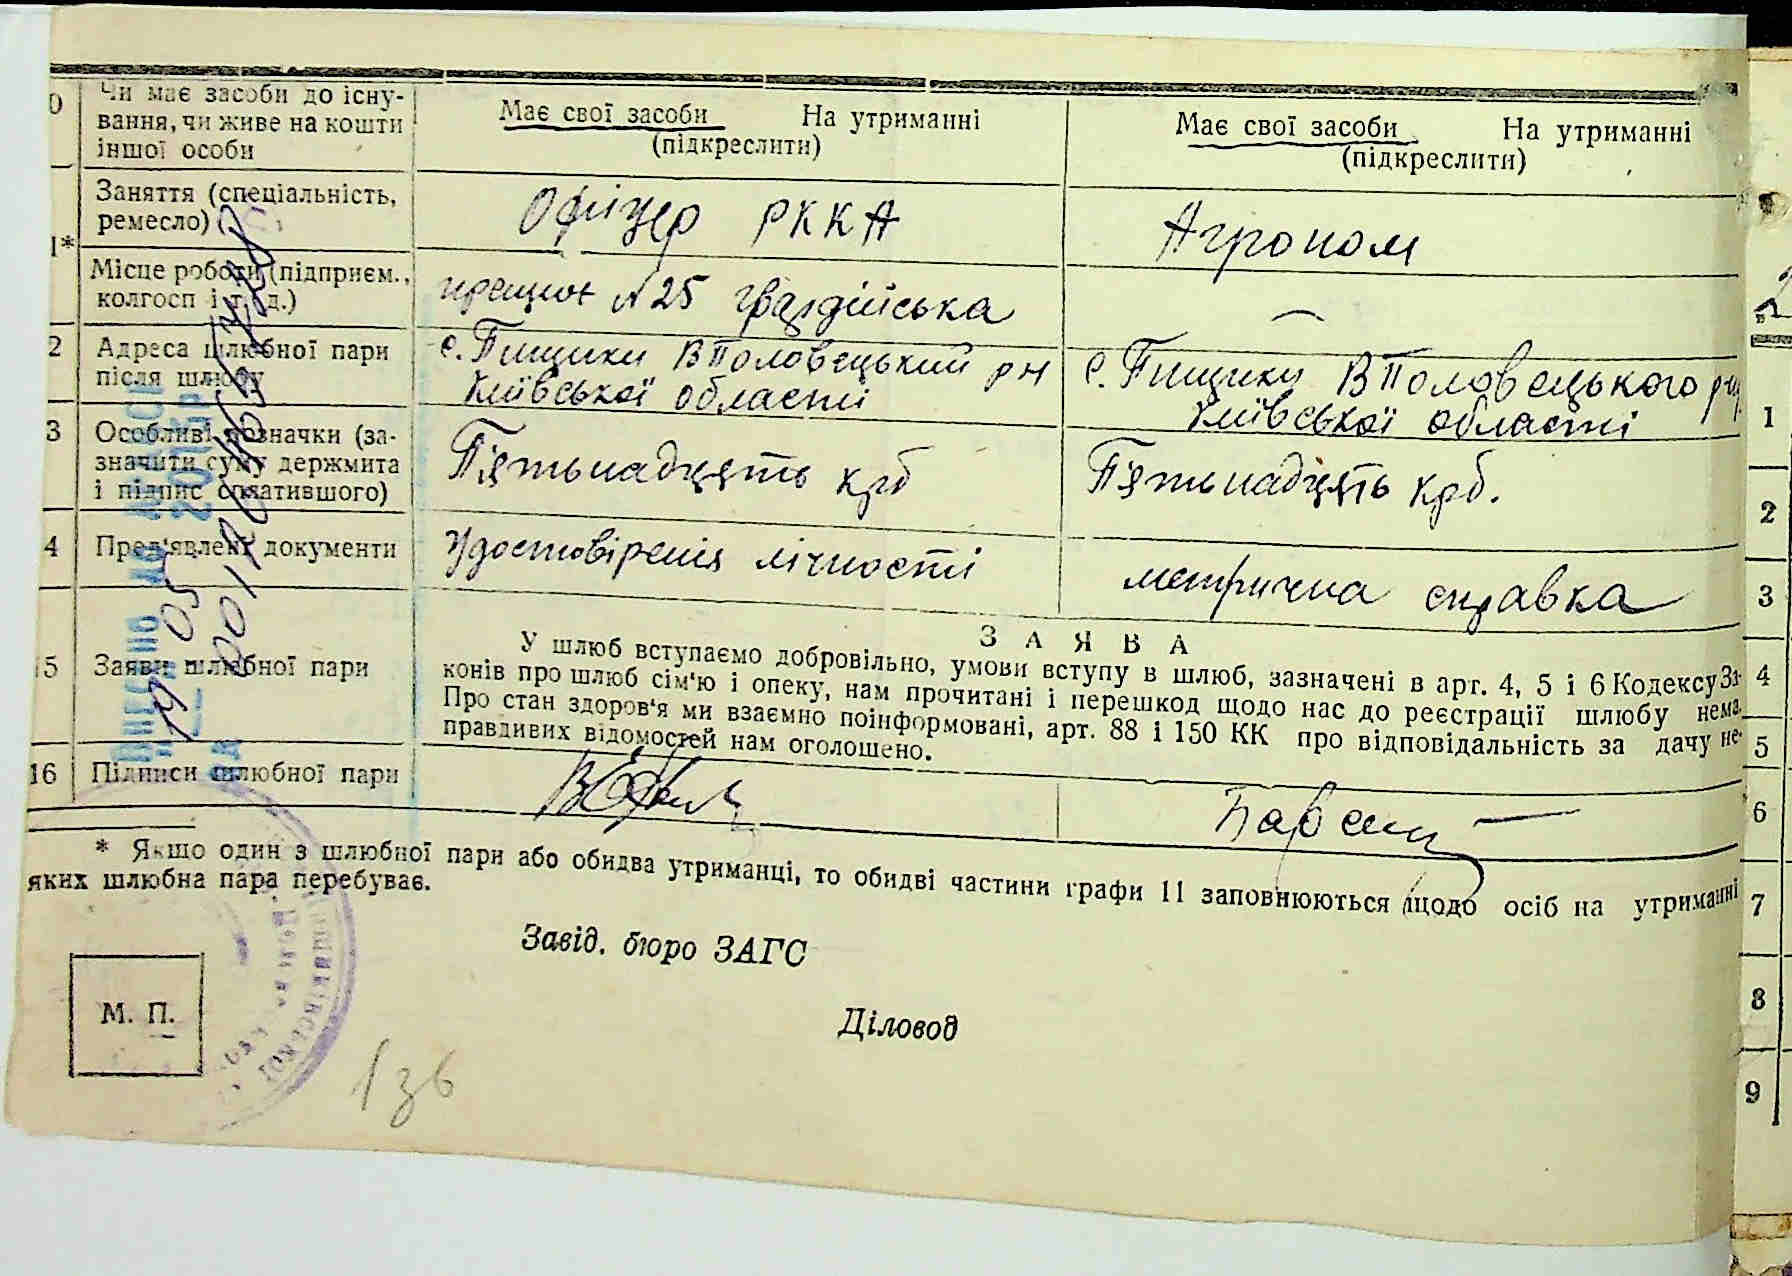 0 Чи має засоби до існу-
вання, чи живе на кошти
іншої особи
Має свої засоби На утриманні
(підкреслити)
Має свої засоби На утриманні
(підкреслити)
1* Заняття (спеціальність,
ремесло)
Офіцер РККА
Агроном
Місце роботи (підприєм.,
колгосп і т. д.)
N 25 гвардійська
—
2 Адреса шлюбної пари
після шлюбу
с. Пищики ВПоловецький рн
Київської області
с. Пищики ВПоловецького
Київської області
3 Особливі позначки (за-
значити суму держмита
і підпис сплатившого)
П'ятьнадцять крб
П'ятьнадцять крб.
4 Пред'явлені документи
Удостовіренія лічності
метрична справка
15 Заяви шлюбної пари
ЗАЯВА
У шлюб вступаємо добровільно, умови вступу в шлюб, зазначені в арт. 4, 5 і 6 Кодексу За-
конів про шлюб сім'ю і опеку, нам прочитані і перешкод щодо нас до реєстрації шлюбу нема.
Про стан здоров'я ми взаємно поінформовані, арт. 88 і 150 КК про відповідальність за дачу не-
правдивих відомостей нам оголошено.
16 Підписи шлюбної пари
* Якщо один з шлюбної пари або обидва утриманці, то обидві частини графи 11 заповнюються щодо осіб на утриманні
яких шлюбна пара перебуває.
Завід. бюро ЗАГС
Діловод
М. П.
136
1
2
3
4
5
6
7
8
9